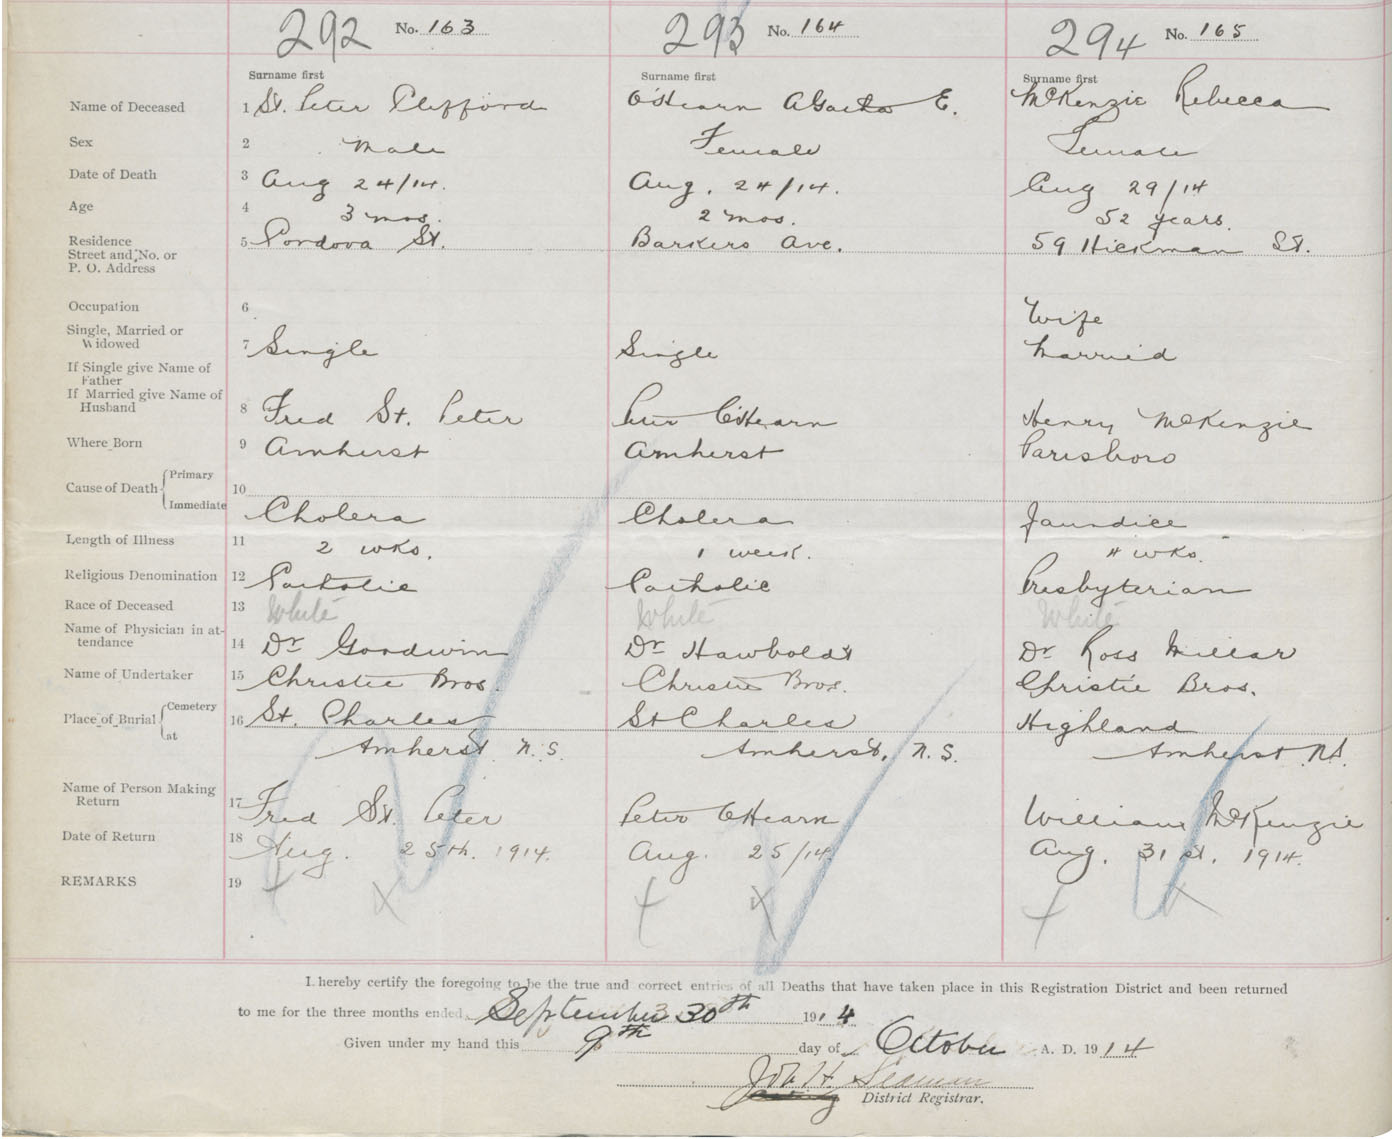 292 No. 163 293 No. 164 294 No. 165
Surname first Surname first Surname first
Name of Deceased 1 St. Peter Clifford O'Hearn Agatha E. McKenzie Rebecca
Sex 2 Male Female Female
Date of Death 3 Aug 24/14. Aug. 24/14. Aug 29/14
Age 4 3 mos. 2 mos. 52 years.
Residence 5 Cordova St. Barkers Ave. 59 Hickman St.
Street and No. or
P. O. Address
Occupation 6 Wife
Single, Married or
Widowed 7 Single Single Married
If Single give Name of
Father
If Married give Name of
Husband 8 Fred St. Peter Peter O'Hearn Henry McKenzie
Where Born 9 Amherst Amherst Parrsboro
Cause of Death Primary 10
Immediate Cholera Cholera Jaundice
Length of Illness 11 2 wks. 1 week. 4 wks.
Religious Denomination 12 Catholic Catholic Presbyterian
Race of Deceased 13 White White White
Name of Physician in at-
tendance 14 Dr Goodwin Dr Hawboldt Dr Ross Millar
Name of Undertaker 15 Christie Bros. Christie Bros. Christie Bros.
Place of Burial Cemetery 16 St. Charles St Charles Highland
at Amherst N.S. Amherst, N.S. Amherst N.S.
Name of Person Making
Return 17 Fred St. Peter Peter O'Hearn William McKenzie
Date of Return 18 Aug. 25th. 1914. Aug. 25/14. Aug. 31st. 1914.
REMARKS 19
I hereby certify the foregoing to be the true and correct entries of all Deaths that have taken place in this Registration District and been returned
to me for the three months ended September 30th 1914
Given under my hand this 9th day of October A. D. 1914
Job H. Seaman
District Registrar.